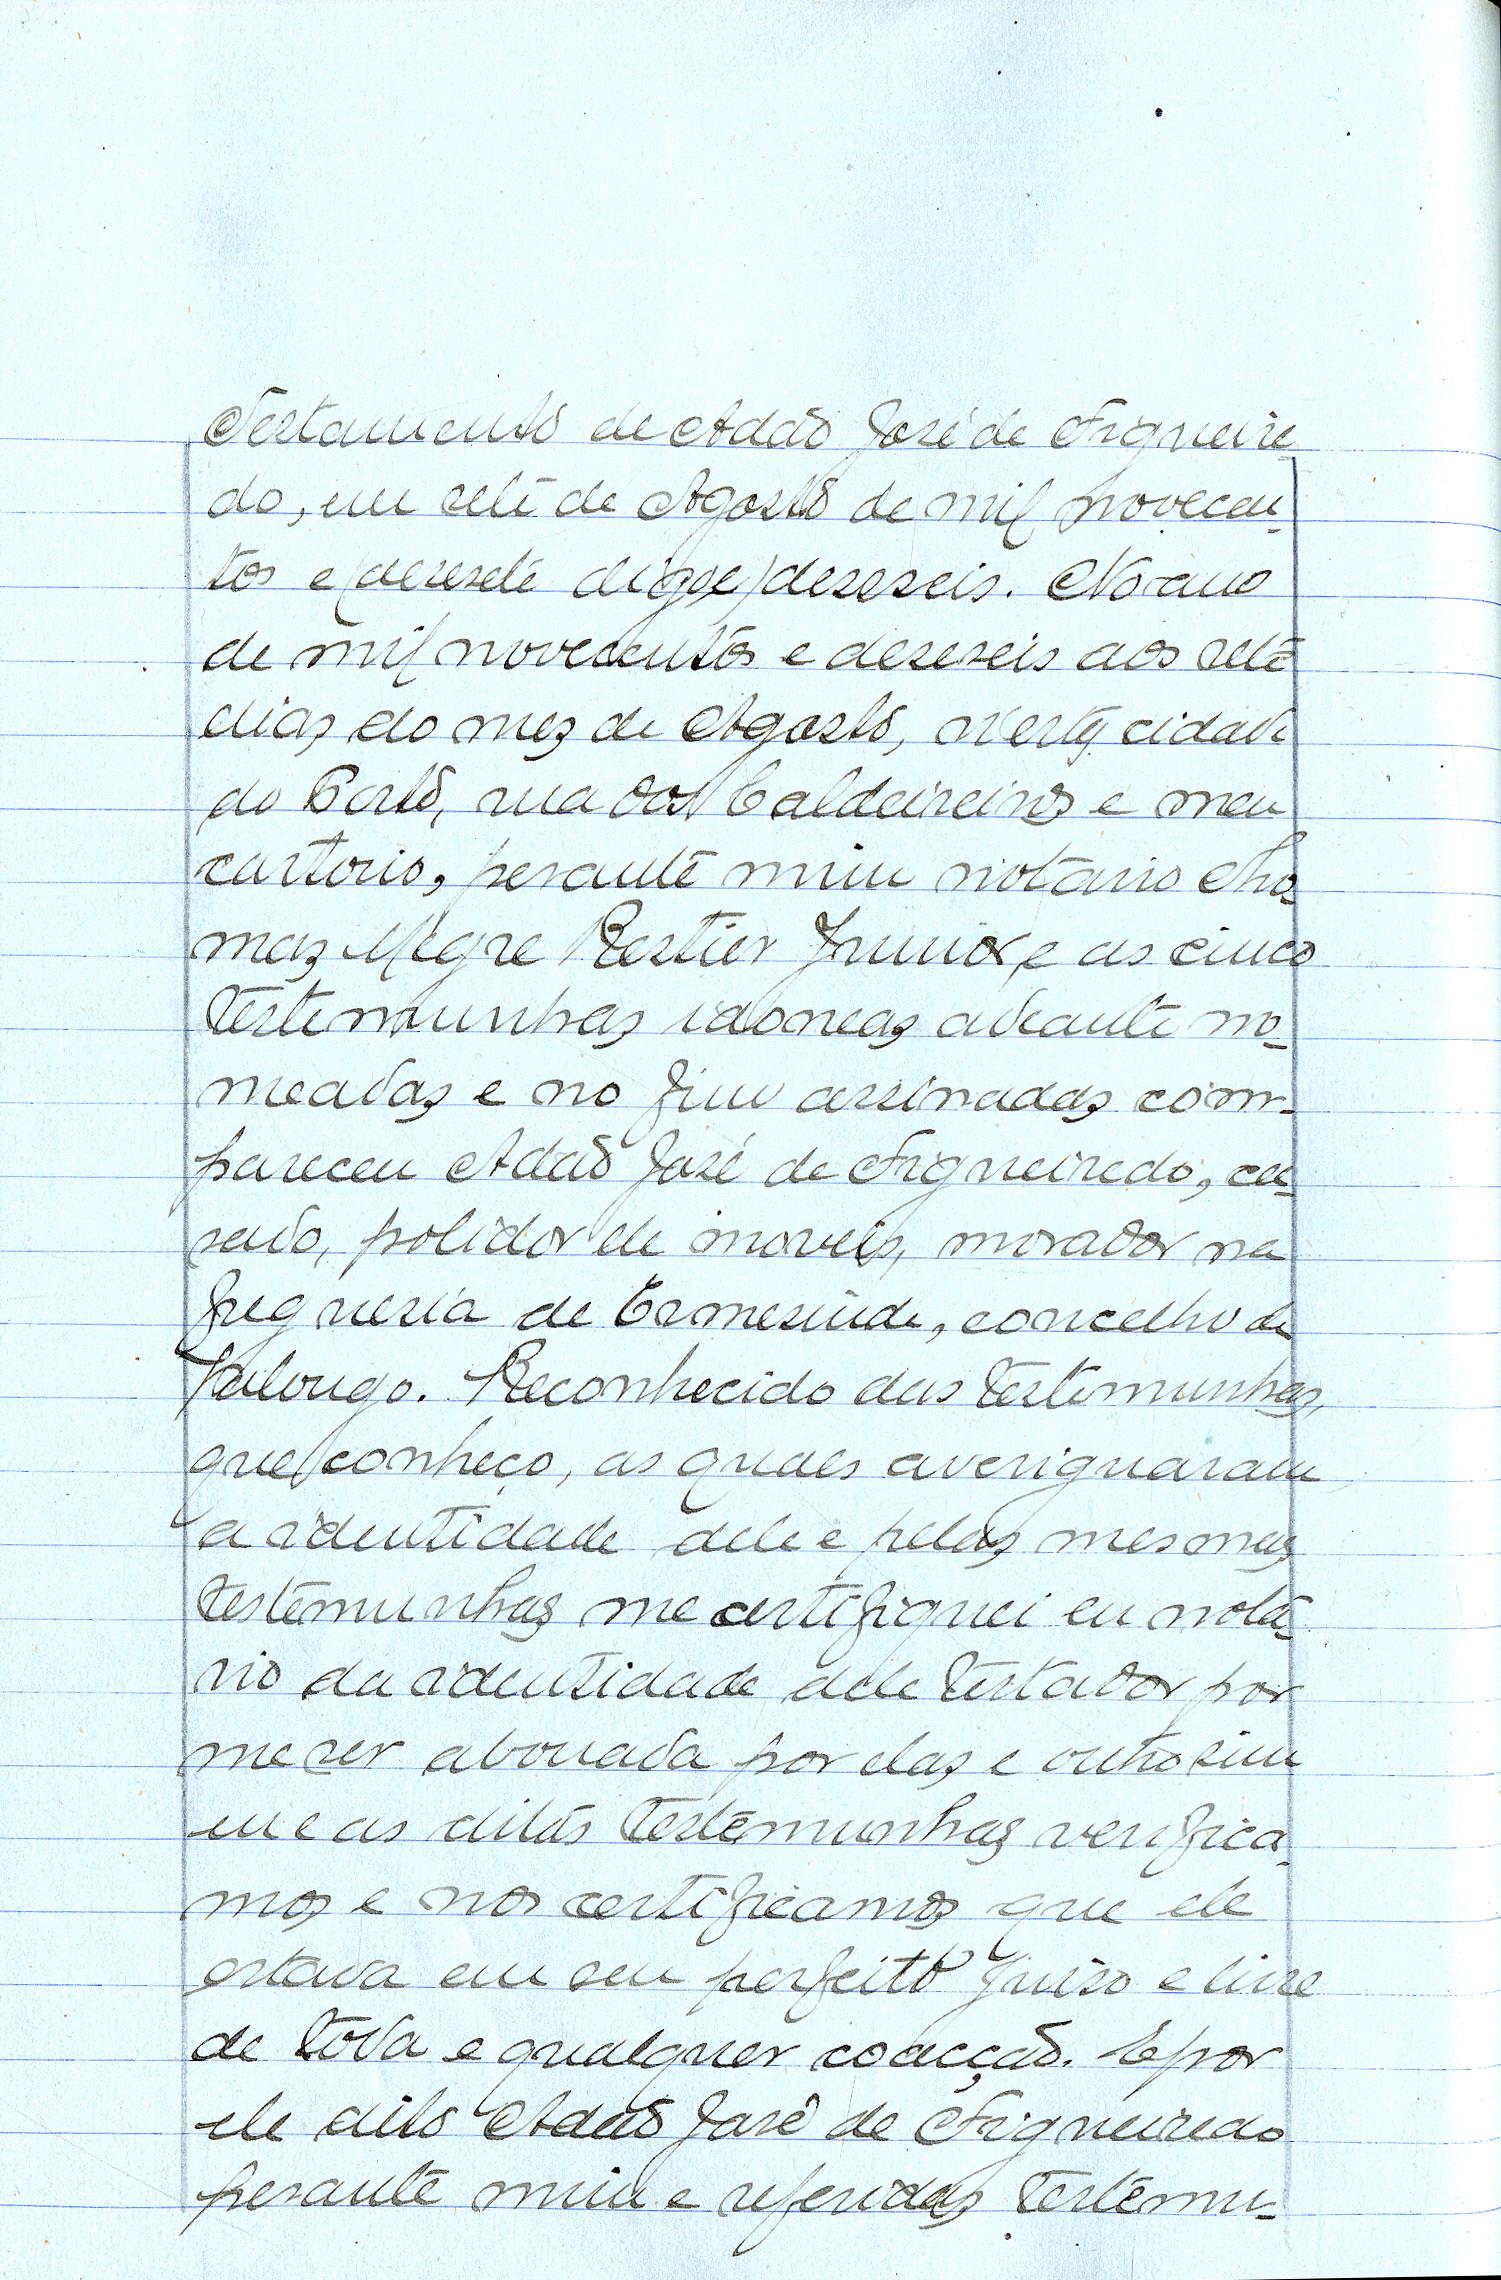 Testamento de Adão José de Figueire
do, em sete de Agosto de mil novecen-
tos e (desesete digo e) deseseis. No anno
de mil novecentos e deseseis aos sete
dias do mez de Agosto, n'esta cidade
do Porto, rua dos Caldeireiros e meu
cartorio, perante mim notario Tho-
maz Megre Restier Junior, e as cinco
testemunhas idoneas adeante no-
meadas e no fim assinadas com-
pareceu Adão José de Figueiredo, ca-
sado, polidor de moveis, morador na
freguesia de Ermesinde, concelho de
Valongo. Reconhecido das testemunhas,
que conheço, as quaes averiguaram
a identidade dele e pelas mesmas
testemunhas me certifiquei eu notá-
rio da identidade dele testador por
me ser abonada por elas e outro sim
eu e as ditas testemunhas verifica-
mos e nos certificamos que ele
estava em seu perfeito juiso e livre
de toda e qualquer coacção. E por
ele dito Adão José de Figueiredo
perante mim e referidas testemu-